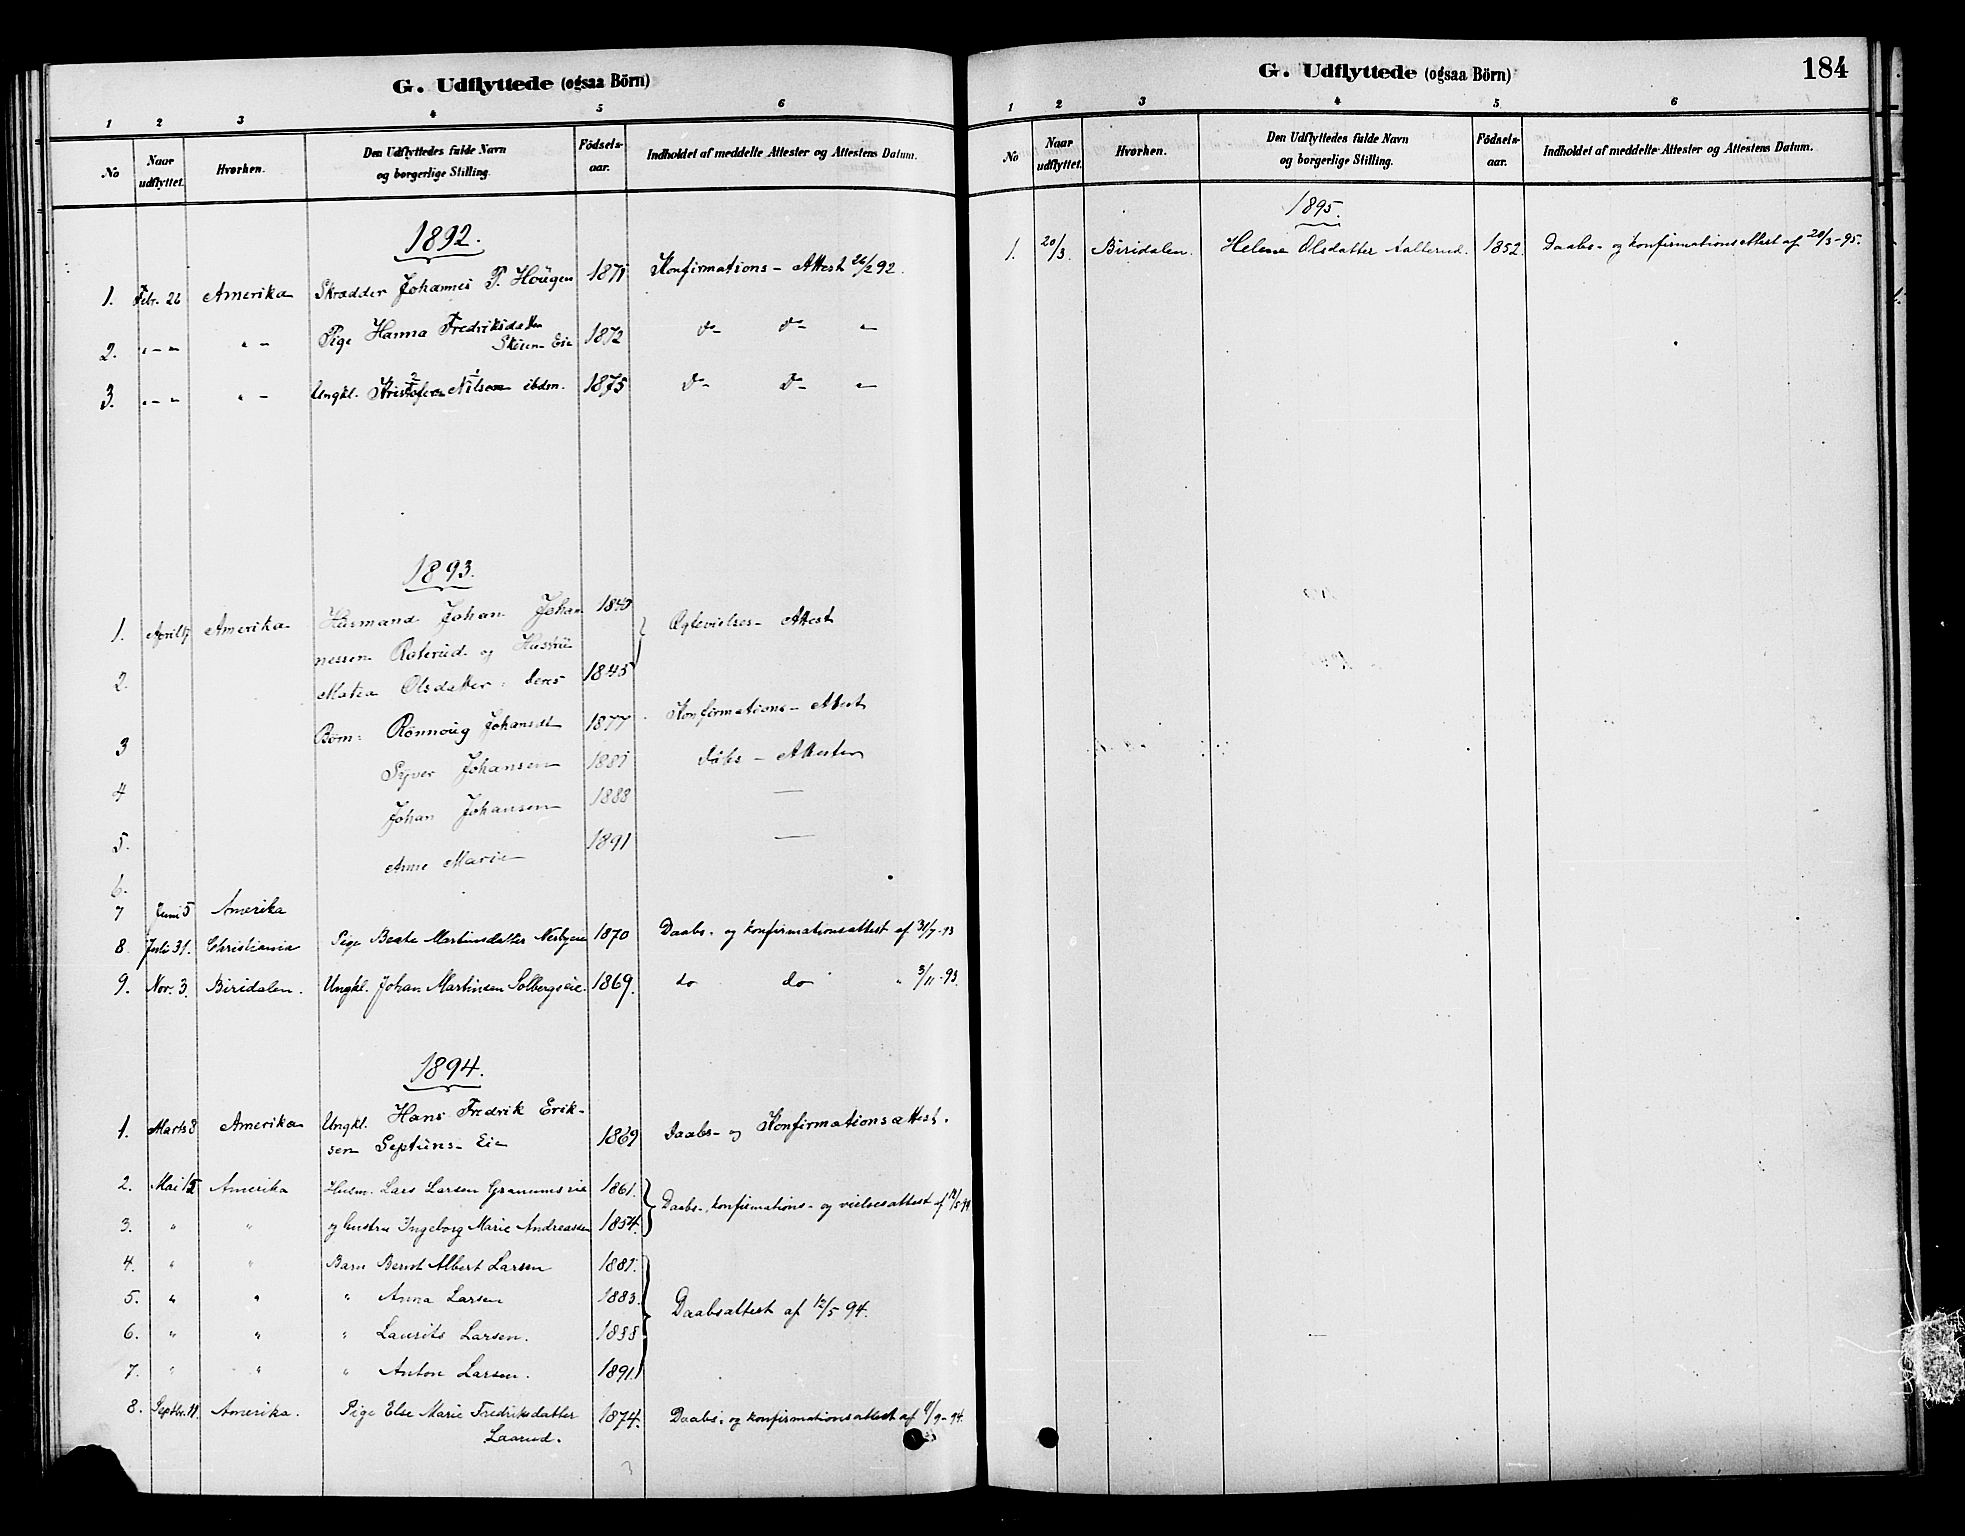 G. Udflyttede (ogsaa Börn)
1 2 3 4 5 6
No Naar udflyttet. Hvorhen. Den Udflyttedes fulde Navn og borgerlige Stilling. Födsels-aar. Indholdet af meddelte Attester og Attestens Datum.
1892.
1. Febr. 26 Amerika Skrædder Johannes P. Hougen 1871 Konfirmations- Attest 26/2 92.
2. " - " " - Pige Hanna Fredriksdatter
Skeien- Eie 1872 d- d- "
3. " - " " - Ungkl. Kristofer Nilsen ibdm. 1875 d- d- "
1893.
1. April Amerika Husmand Johan Johan- Ægtevielses- Attest
nessen Roterud og Hustru
2. Matea Olsdatter: deres 1845
3 Børn: Rønnoug Johansdt 1877 Konfirmations- Attest
4 Syver Johansen 1881 Daabs- Attester
5. Johan Johansen 1888 —
6. Anne Marie 1891 —
7 Juni 5 Amerika
8. Juli 31. Christiania Pige Beate Martinsdatter Nesbyeie 1870 Daabs- og konfirmationsattest af 31/7-93
9. Nov. 3. Biridalen. Ungkl. Johan Martinsen Solbergseie. 1869. do do " 3/11-93.
1894.
1. Marts 8 Amerika Ungkl. Hans Fredrik Erik-
sen Septuns- Eie 1869 Daabs- og Konfirmationsattest.
2. Mai 12 Amerika Husm. Lars Larsen Granumseie 1861. Daabs-, konfirmations- og vielsesattest af 12/5-94
3. " " og hustru Ingeborg Marie Andreassen 1854.
4. " " Barn Bernt Albert Larsen 1881.
5. " " " Anna Larsen 1883. Daabsattest af 12/5 94.
6. " " " Laurits Larsen. 1888
7. " " " Anton Larsen. 1891.
8. Septbr. 11. Amerika. Pige Else Marie Fredriksdatter 1874. Daabs- og konfirmationsattest af /9-94.
Laarud.
G. Udflyttede (ogsaa Börn) 184
1 2 3 4 5 6
No Naar udflyttet. Hvorhen. Den Udflyttedes fulde Navn og borgerlige Stilling. Födsels-aar. Indholdet af meddelte Attester og Attestens Datum.
1895.
1. 20/3. Biridalen. Helene Olsdatter Aalterud. 1852. Daabs- og konfirmationsattest af 20/3-95.